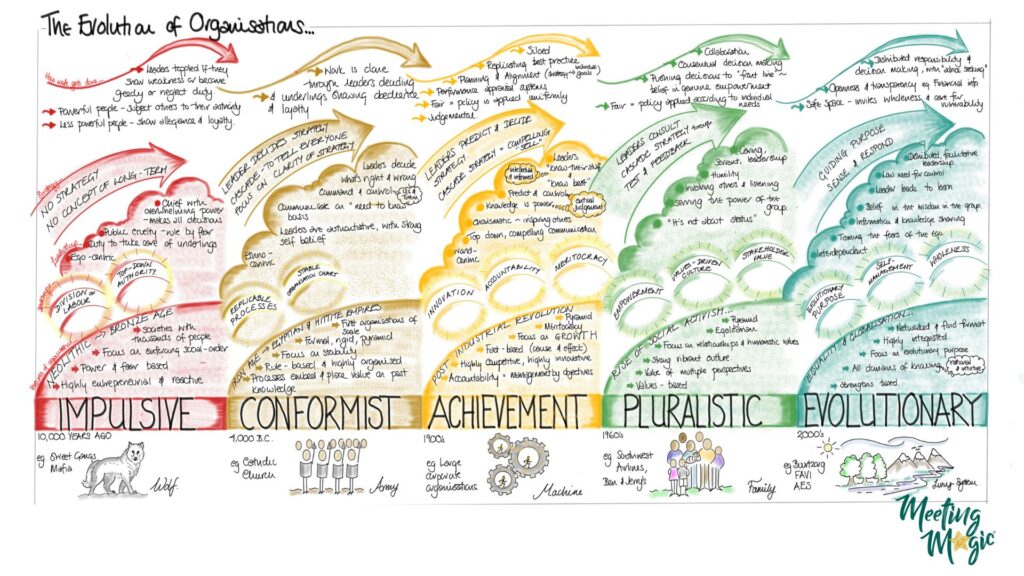 The Evolution of Organisations...
How work gets done...
Leaders toppled if they
show weakness or become
greedy or neglect duty.
Powerful people - subject others to their authority
Less powerful people - show allegiance & loyalty
Strategy
NO STRATEGY
NO CONCEPT OF LONG-TERM
Leadership
Chief with
overwhelming power
- makes all decisions
Public cruelty - rule by fear
Duty to take care of underlings
Ego-centric
DIVISION OF
LABOUR
TOP-DOWN
AUTHORITY
NEOLITHIC -> BRONZE AGE
Societies with
thousands of people
Focus on enforcing social-order
Power & fear based
Highly entrepreneurial & reactive
IMPULSIVE
10,000 YEARS AGO
eg Street Gangs
Mafia
Wolf
Work is done
through leaders deciding
& underlings showing obedience
& loyalty
LEADER DECIDES STRATEGY
CASCADE - TO TELL EVERYONE
FOCUS ON CLARITY OF STRATEGY
Leaders decide
what's right & wrong
Command & control
Communicate on "need to know"
basis
Leaders are authoritative, with strong
self belief
Ethno-
centric
REPLICABLE
PROCESSES
STABLE
ORGANISATION CHART
IRON AGE -> EGYPTIAN & HITTITE EMPIRES
First organisations of
Scale
Formal, rigid, pyramid
Focus on stability
Rule - based & highly organised
Processes embed & place value on past
knowledge
CONFORMIST
4,000 B.C.
eg Catholic
Church
Army
Siloed
Replicating best practice
Planning & Alignment (strategy -> individual goals)
Performance appraisal systems
Fair = policy is applied uniformly
Judgemental
LEADERS PREDICT & DECIDE
STRATEGY
CASCADE STRATEGY - "COMPELLING
SELL"
Leaders
"know their stuff"
"know best"
Intellectual
& informed
Predict & control
Knowledge is power
critical
judgement
Charismatic - inspiring others
Top down, compelling communication
World-
centric
INNOVATION
ACCOUNTABILITY
MERITOCRACY
POST INDUSTRIAL REVOLUTION
Pyramid
Meritocracy
Focus on GROWTH
Fact-based (cause & effect)
Highly competitive, Highly innovative
Accountability - Management by objectives
ACHIEVEMENT
1900s
eg Large
Corporate
organisations
Machine
Collaboration
Consensual decision making
Pushing decisions to "front line" ~
belief in genuine empowerment
Fair = policy applied according to individual
needs
LEADERS CONSULT
CASCADE STRATEGY through
TEST & FEEDBACK
Caring,
Servant leadership
Humility
Involving others & listening
Serving the power of the
group.
"It's not about status"
EMPOWERMENT
VALUES-DRIVEN
CULTURE
STAKEHOLDER
VALUE
RISE OF SOCIAL ACTIVISM...
Pyramid
Egalitarian
Focus on relationships & humanistic values
Strong vibrant culture
Value of multiple perspectives
Values - based
PLURALISTIC
1960s
eg Southwest
Airlines,
Ben & Jerry's
Family
Distributed responsibility &
decision making, with "advice seeking"
Openness & transparency eg Financial info
Safe Space - invites wholeness & care for
vulnerability
GUIDING PURPOSE
SENSE & RESPOND
Distributed, facilitative
leadership
Low need for control
Leader leads to learn
Belief in the wisdom in the group
Information & knowledge sharing
Taming the fears of the ego
Interdependent
EVOLUTIONARY
PURPOSE
SELF-
MANAGEMENT
WHOLENESS
EQUALITY & GLOBALISATION...
Networked & fluid format
Highly integrated
Focus on evolutionary purpose
All domains of knowing
rational
& intuitive
Strengths based
EVOLUTIONARY
2000's
eg Buurtzorg
FAVI
AES
Living System
Meeting
Magic